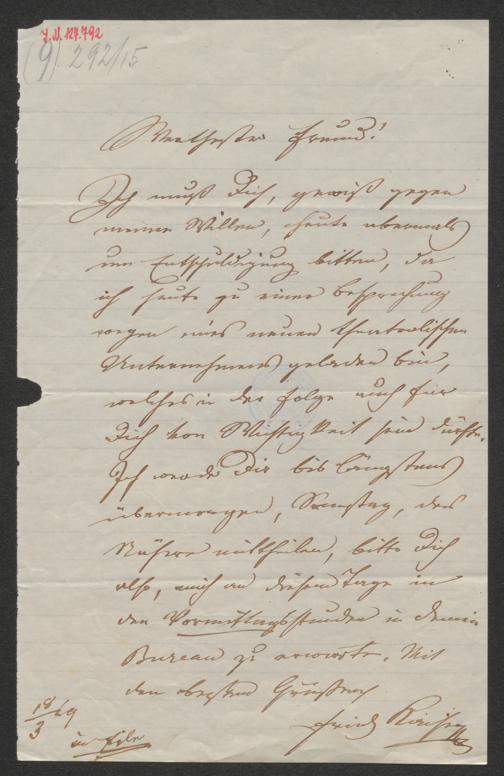 J.N. 127.792
(9) 292/15
Werthester Freund!
Ich muß Dich, gewiß gegen
meinen Willen, heute abermals
um Entschuldigung bitten, da
ich heute zu einer Besprechung
wegen eines neuen theatralischen
Unternehmens geladen bin,
welches in der Folge auch für
Dich von Wichtigkeit sein dürfte.
Ich werde Dir bis längstens
übermorgen, Samstag, das
Nähere mittheilen, bitte Dich
also, mich an diesem Tage in
den Vormittagsstunden in Deinem
Bureau zu erwarten. Mit
den besten Grüßen
Friedr Kaiser
18/3 69
in Eile